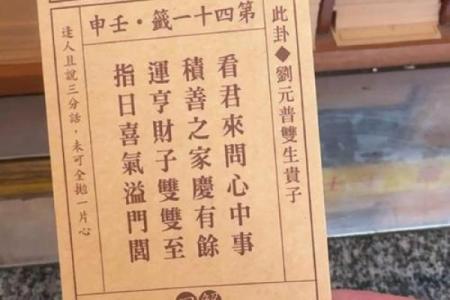 第四十一籤·壬申
此卦◆劉元普雙生貴子
看君來問心中事
積善之家慶有餘
運亨財子雙雙至
指日喜氣溢門閭
逢人且說三分話,未可全拋一片心